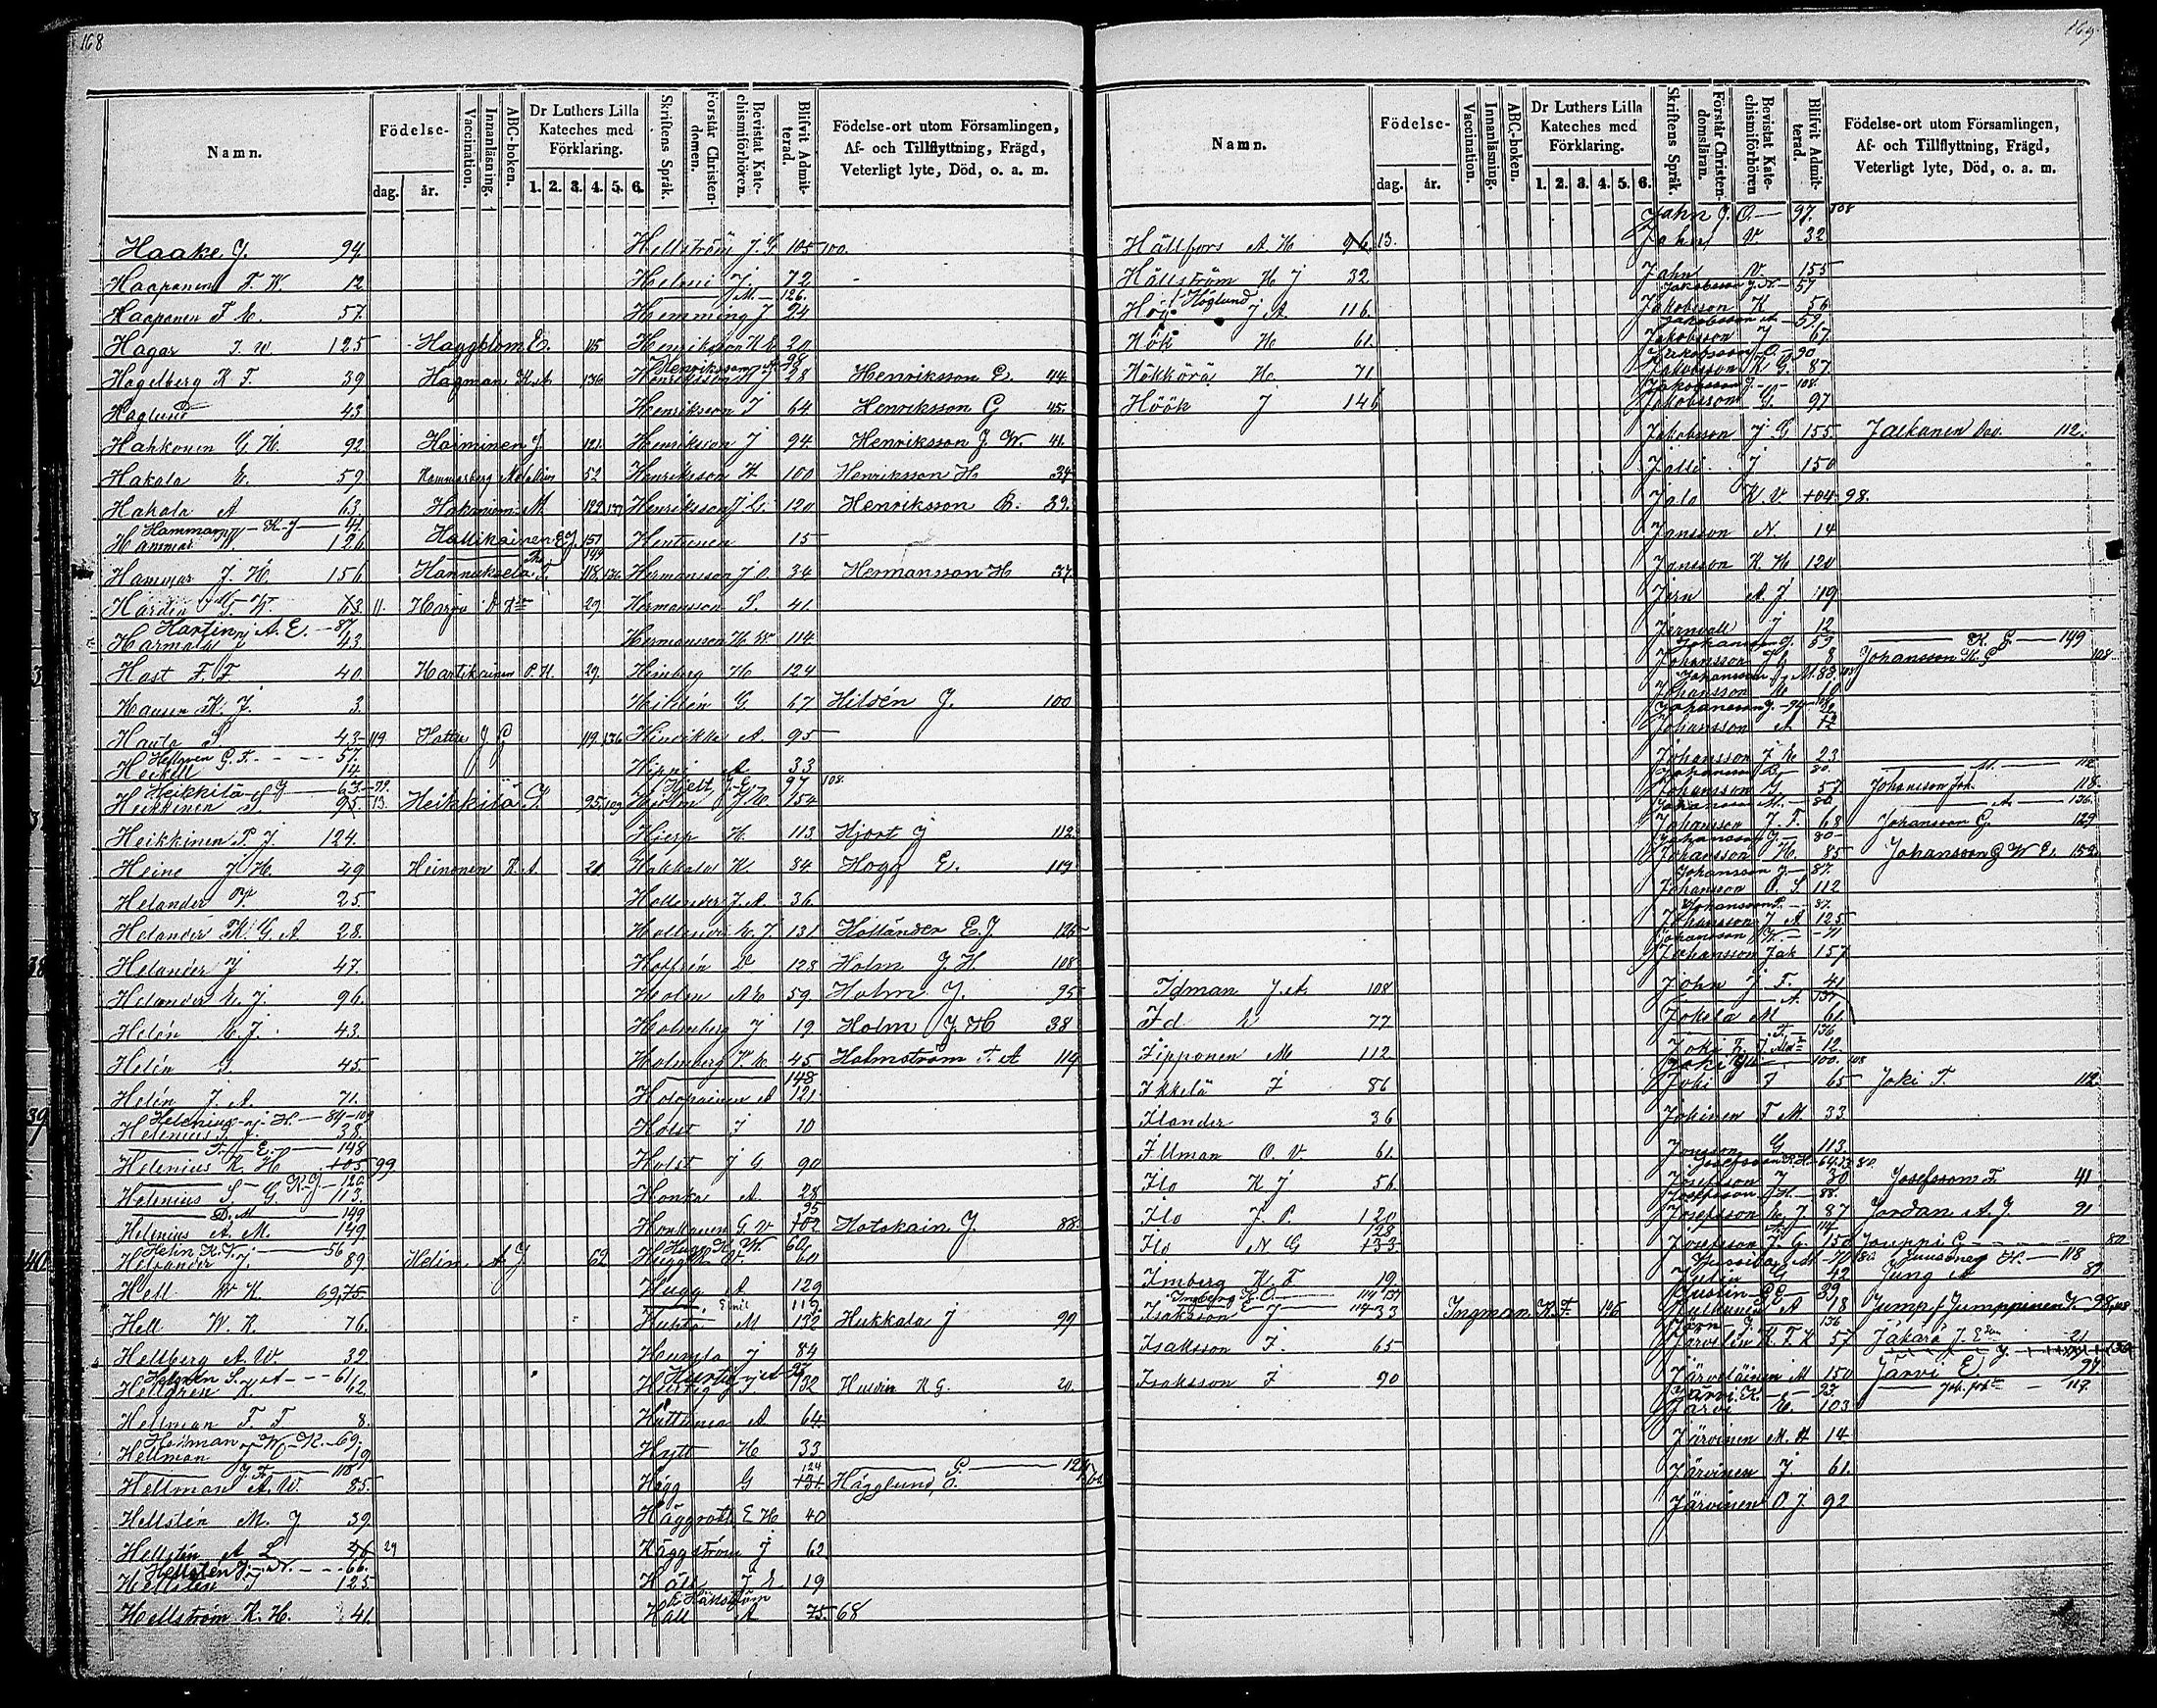 168
Namn.
Födelse-
dag.
år.
Vaccination.
Innanläsning.
ABC-boken.
Dr Luthers Lilla
Kateches med
Förklaring.
1. 2. 3. 4. 5. 6.
Skriftens Språk.
Förstår Christen-
domen.
Bevistat Kate-
chismiförhören.
Blifvit Admit-
terad.
Födelse-ort utom Församlingen,
Af- och Tillflyttning, Frägd,
Veterligt lyte, Död, o. a. m.
Haake J. 94.
Haaponen F. K. 12
Haaponen F E. 57.
Hagar J. W. 125
Hagelberg K F. 39
Haglund 43.
Hahkonen G. H. 92.
Hakala E. 59
Hakala A 63.
Hammar K. J 41.
Hammar W. 126
Hammar J. H. 156
Hardin 63. 11.
Hartin A. E. 87
Harmala J 43.
Hast F. F 40
Hausen K. J. 3.
Hauta S. 43 119
Hellgren G. F. 57.
Heikell 14
Heikkilä J 63.
Heikkinen S 95. 13.
Heikkinen P. J. 124.
Heine J H. 49
Helander F. 25.
Helander K. G. A 28.
Helander J 47.
Helander E. J. 96.
Helén C. J. 43.
Helén G. 45.
Helén J. A. 71.
Helenius J. H. 84-109
Helenius S. J. 38.
F. E. 148
Helenius K. H 105 99
K. J. 126
Helenius S. G. 113.
D. M 149
Helenius A. M. 149
Helin K. V. 56
Helsander J. 89
Hell W K. 69, 75
Hell W. K. 76.
Hellberg A. W. 39
Helgrén S. A 61
Hellgren K. 62
Hellman F. F 8.
Hellman W. K. 69.
Hellman 19
J. F. 118
Hellman A. W. 85.
Hellstén M. J 39.
Hellstén A L 46 29
Hellsten J. A. 66.
Hellstén J 125
Hellström K. H. 41.
Haggblom E. 115
Hagman K. A 136
Harminen J. 121
Hammarberg Natalia 52
Hakaniemi M. 122, 137
Hallikainen E J. 151
149
Hannuksela F. 118, 136
Harju 29.
Hartikainen P. H. 29.
Hattu J G 119, 136
Heikkilä J. 95, 109
Heinonen K. A. 20
Helin A J. 62
Hellström J. G. 105 100.
Heleni J. 72
M. 126.
Hemming J 24
Henriksson K E. 20
Henriksson A 98
Henriksson K J 28
Henriksson J 64
Henriksson J 94
Henriksson H 100
Henriksson J G. 120
Hentunen 15
Hermansson J. O. 34
Hermansson S. 41
Hermansson H. W. 114.
Himberg H 124
Hildén G. 67
Hinrikka A. 95
Hippi A 33
Hjelt J. E. 97 108.
Hjelm J. H. 154
Hjerp H. 113
Hokkala K. 34
Hollender J. A. 36
Hollender E. J. 131
Hoffrén D 128
Holm A E 59
Holmberg J 19
Holmberg V. E. 45
148
Holopainen A 121
Holst J 10
Holst J G 90
Honka A. 28
95
Honkanen G V 102
Hugg K. W. 60
Hugg K. V. 60
Hugg A 129
Emil 119
Huhta M 132
Huusela J 84
Hurtig A 93
Hurtig J 132
Huttunen A 64
Hytt H 33
124
Hägg G 131
Häggroth E H 40
Häggström J 62
Häll J E 19
Hällström
Häll A 75. 68
Henriksson E. 44
Henriksson G 45.
Henriksson J W. 41.
Henriksson H 34
Henriksson B. 39.
Hermansson H 37.
Hildén J. 100
Hjort J 112
Hogg E. 119
Holländer E J 126
Holm J. H. 108
Holm J. 95
Holm J. H 38
Holmström F. A 119
Hotokain J. 88.
Hukkala J 99
Hulvin K G. 20.
G. 124
Hägglund, O.
169
Namn.
Födelse-
dag.
år.
Vaccination.
Innanläsning.
ABC-boken.
Dr Luthers Lilla
Kateches med
Förklaring.
1. 2. 3. 4. 5. 6.
Skriftens Språk.
Förstår Christen-
domsläran.
Bevistat Kate-
chismiförhören
Blifvit Admit-
terad.
Födelse-ort utom Församlingen,
Af- och Tillflyttning, Frägd,
Veterligt lyte, Död, o. a. m.
Hällfors A. H 96. 13.
Hällström K J 32
Höglund J A. 116.
Hök H 61.
Hökkörä H. 71
Höök J 146
Idman J. A. 108
Id E 77
Iipponen M 112
Ikkelä J 86
Ilander 36
Illman O. V. 61.
Ilo K J 56
Ilo J. P. 120
128
Ilo N G 133
Imberg K. F 19
Ingberg K. O. 114
Isaksson E J 114 33
Isaksson J. 65
Isaksson J 90
Ingman K. F. 126
Jahn J. O. 97. 108
Jahn V. 32
Jahn V. 155
Jakobsson J. N. 57
Jakobsson K 56
Jakobsson A. 59
Jakobsson J 67.
Jakobsson O. 90
Jakobsson K G. 87
Jakobsson J. 108.
Jakobsson G. 97
Jakobsson J G 155.
Jalli J 150
Jalo K. V. 104 98.
Jansson N. 14
Jansson K H 120
Jern A. J 119
Jernvall J 12
Johansson J. 53
Johansson J G 8
Johansson J. M. 88. 109
Johansson E 10
Johansson J. 94
Johansson A 12
Johansson J E 23
Johansson B. 80.
Johansson G 57
Johansson M. 80
Johansson J. F. 68
Johansson J 80
Johansson H. 85
Johansson J 87.
Johansson O. S 112
Johansson P. 87.
Johansson J A 125
Johansson W. 71
Johansson Jak 157
John J. F. 41
A. 137
Jokela M 61.
F. 136
Joki 12.
Joki 100. 108
Joki J 65
Jokinen F M 33
Jonsson G 113.
Josefsson K. H. 64, 75 80
Josefsson J 30
Josefsson H 88.
Josefsson E. J 87
A. 114
Josefsson J. G. 150
Jussila M 71
Justin G 42
Justin G E 39
Julkunen A 18
Järn J. 136
Järvelin K. F. K 57
Järveläinen M 150
Järvi K. 93
Järvi E. 103
Järvinen M. A 14
Järvinen J 61.
Järvinen O J 92
Jalkanen 112.
K. E. 149
Johansson K. G 108
M. 112
Johansson Joh. 118.
A. 136.
Johansson G. 129
Johansson G W E. 152
Joki F. 112
Josefsson F. 41
Jordan A. J. 91
Jouppi G. 80
Juusonen H. 118
Jung A 89
Jump / Jumppinen J. 98, 108
Jäkarä J. E. 21
Järvi E. 97.
119.